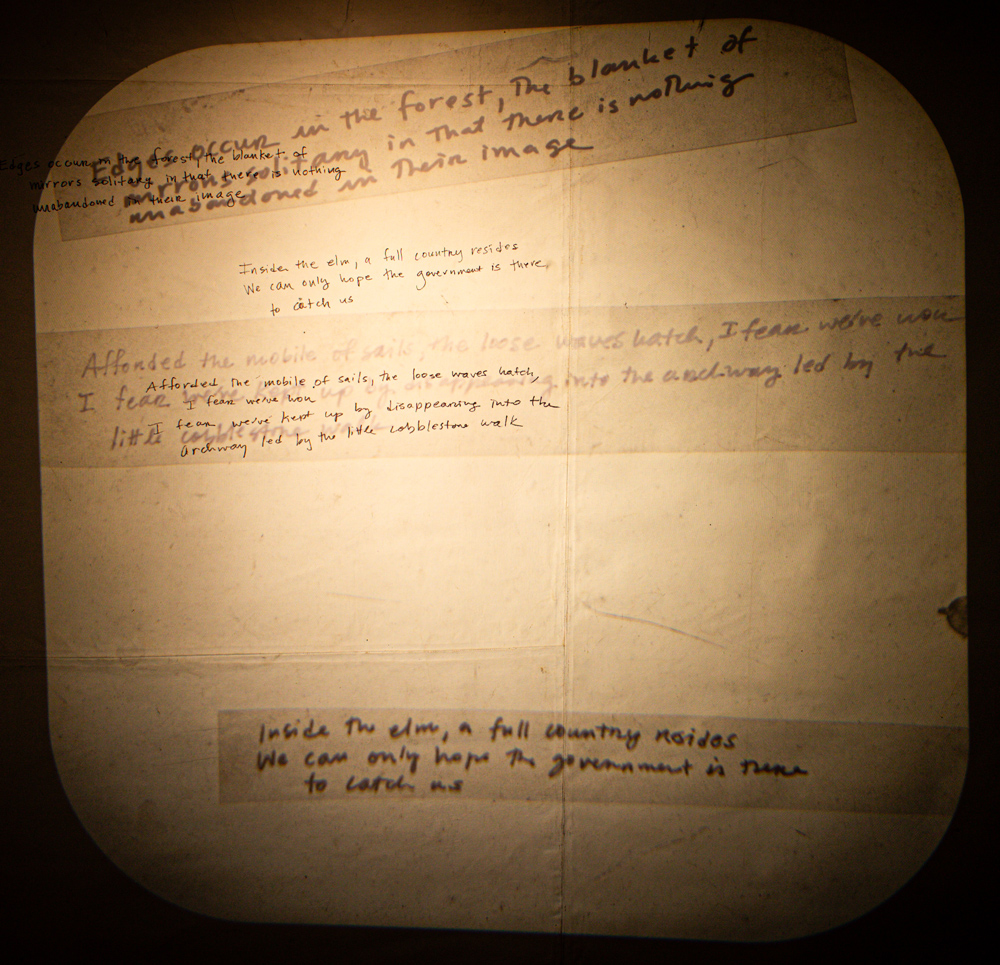 Edges occur in the forest, the blanket of
mirrors solitary in that there is nothing
unabandoned in their image
Edges occur in the forest, the blanket of
mirrors solitary in that there is nothing
unabandoned in their image
Inside the elm, a full country resides
We can only hope the government is there
to catch us
Afforded the mobile of sails, the loose waves hatch, I fear we've won
I fear we've kept up by disappearing into the archway led by the
little cobblestone walk
Afforded the mobile of sails, the loose waves hatch,
I fear we've won
I fear we've kept up by disappearing into the
archway led by the little cobblestone walk
Inside the elm, a full country resides
We can only hope the government is there
to catch us